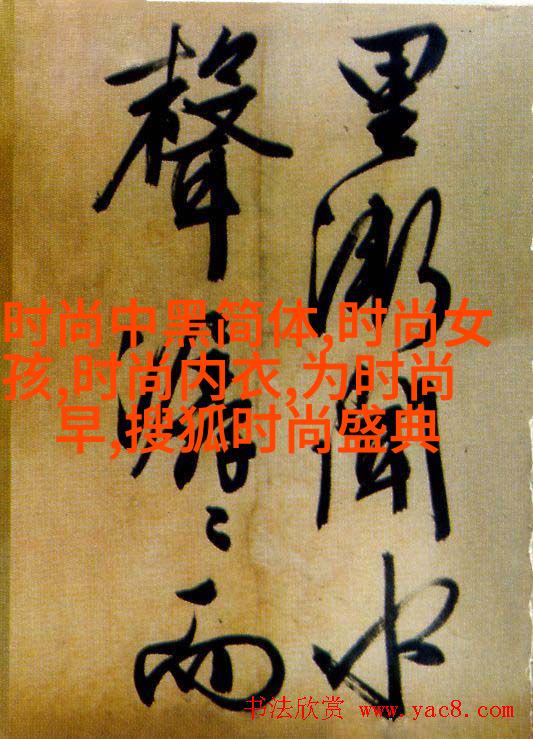 里漸聞水
聲潺〻而
时尚中黑简体,时尚女
孩,时尚内衣,为时尚
早,搜狐时尚盛典
书法欣赏 www.yac8.com